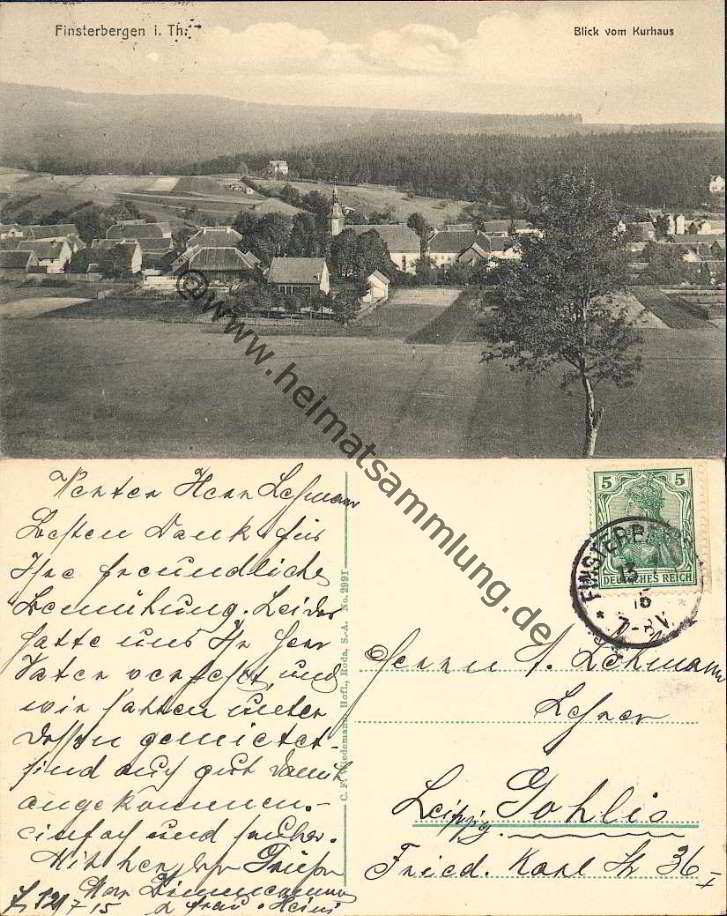 Finsterbergen i. Th.
Blick vom Kurhaus
@www.heimatsammlung.de
Werter Herr Lehmann
Besten Dank für
Ihre freundliche
Bemühung. Leider
hatte uns Ihr Herr
Vater verfehlt und
wir hatten unter
dessen gemietet.
sind auch gut damit
angekommen.
einfach und sauber.
Mit herzl. Grüßen
Max
u Frau u. Heini
F. 12/7 15
C. F. Wiedemann, Hofl., Roda, S.-A. No. 2991
5 5
DEUTSCHES REICH
FINSTERBERGEN
7-8V
Herrn A. Lehmann
Lehrer
Leipzig. Gohlis
Fried. Karl Str 36 I